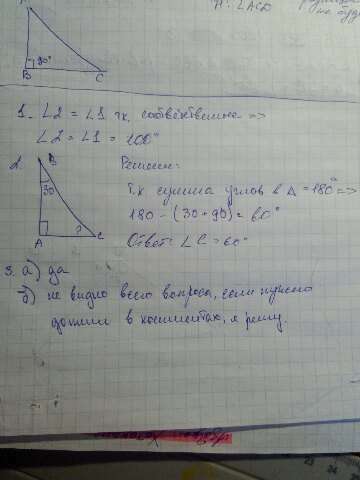 В
90°
С
1. ∠2 = ∠1 т.к. соответственные =>
∠2 = ∠1 = 100°
2.
В
30
А
?
С
Решение:
Т.к сумма углов в Δ = 180° =>
180 - (30 + 90) = 60°
Ответ: ∠C = 60°
3. а) да
б) не видно всего вопроса, если нужно
допиши в комментах, я решу.